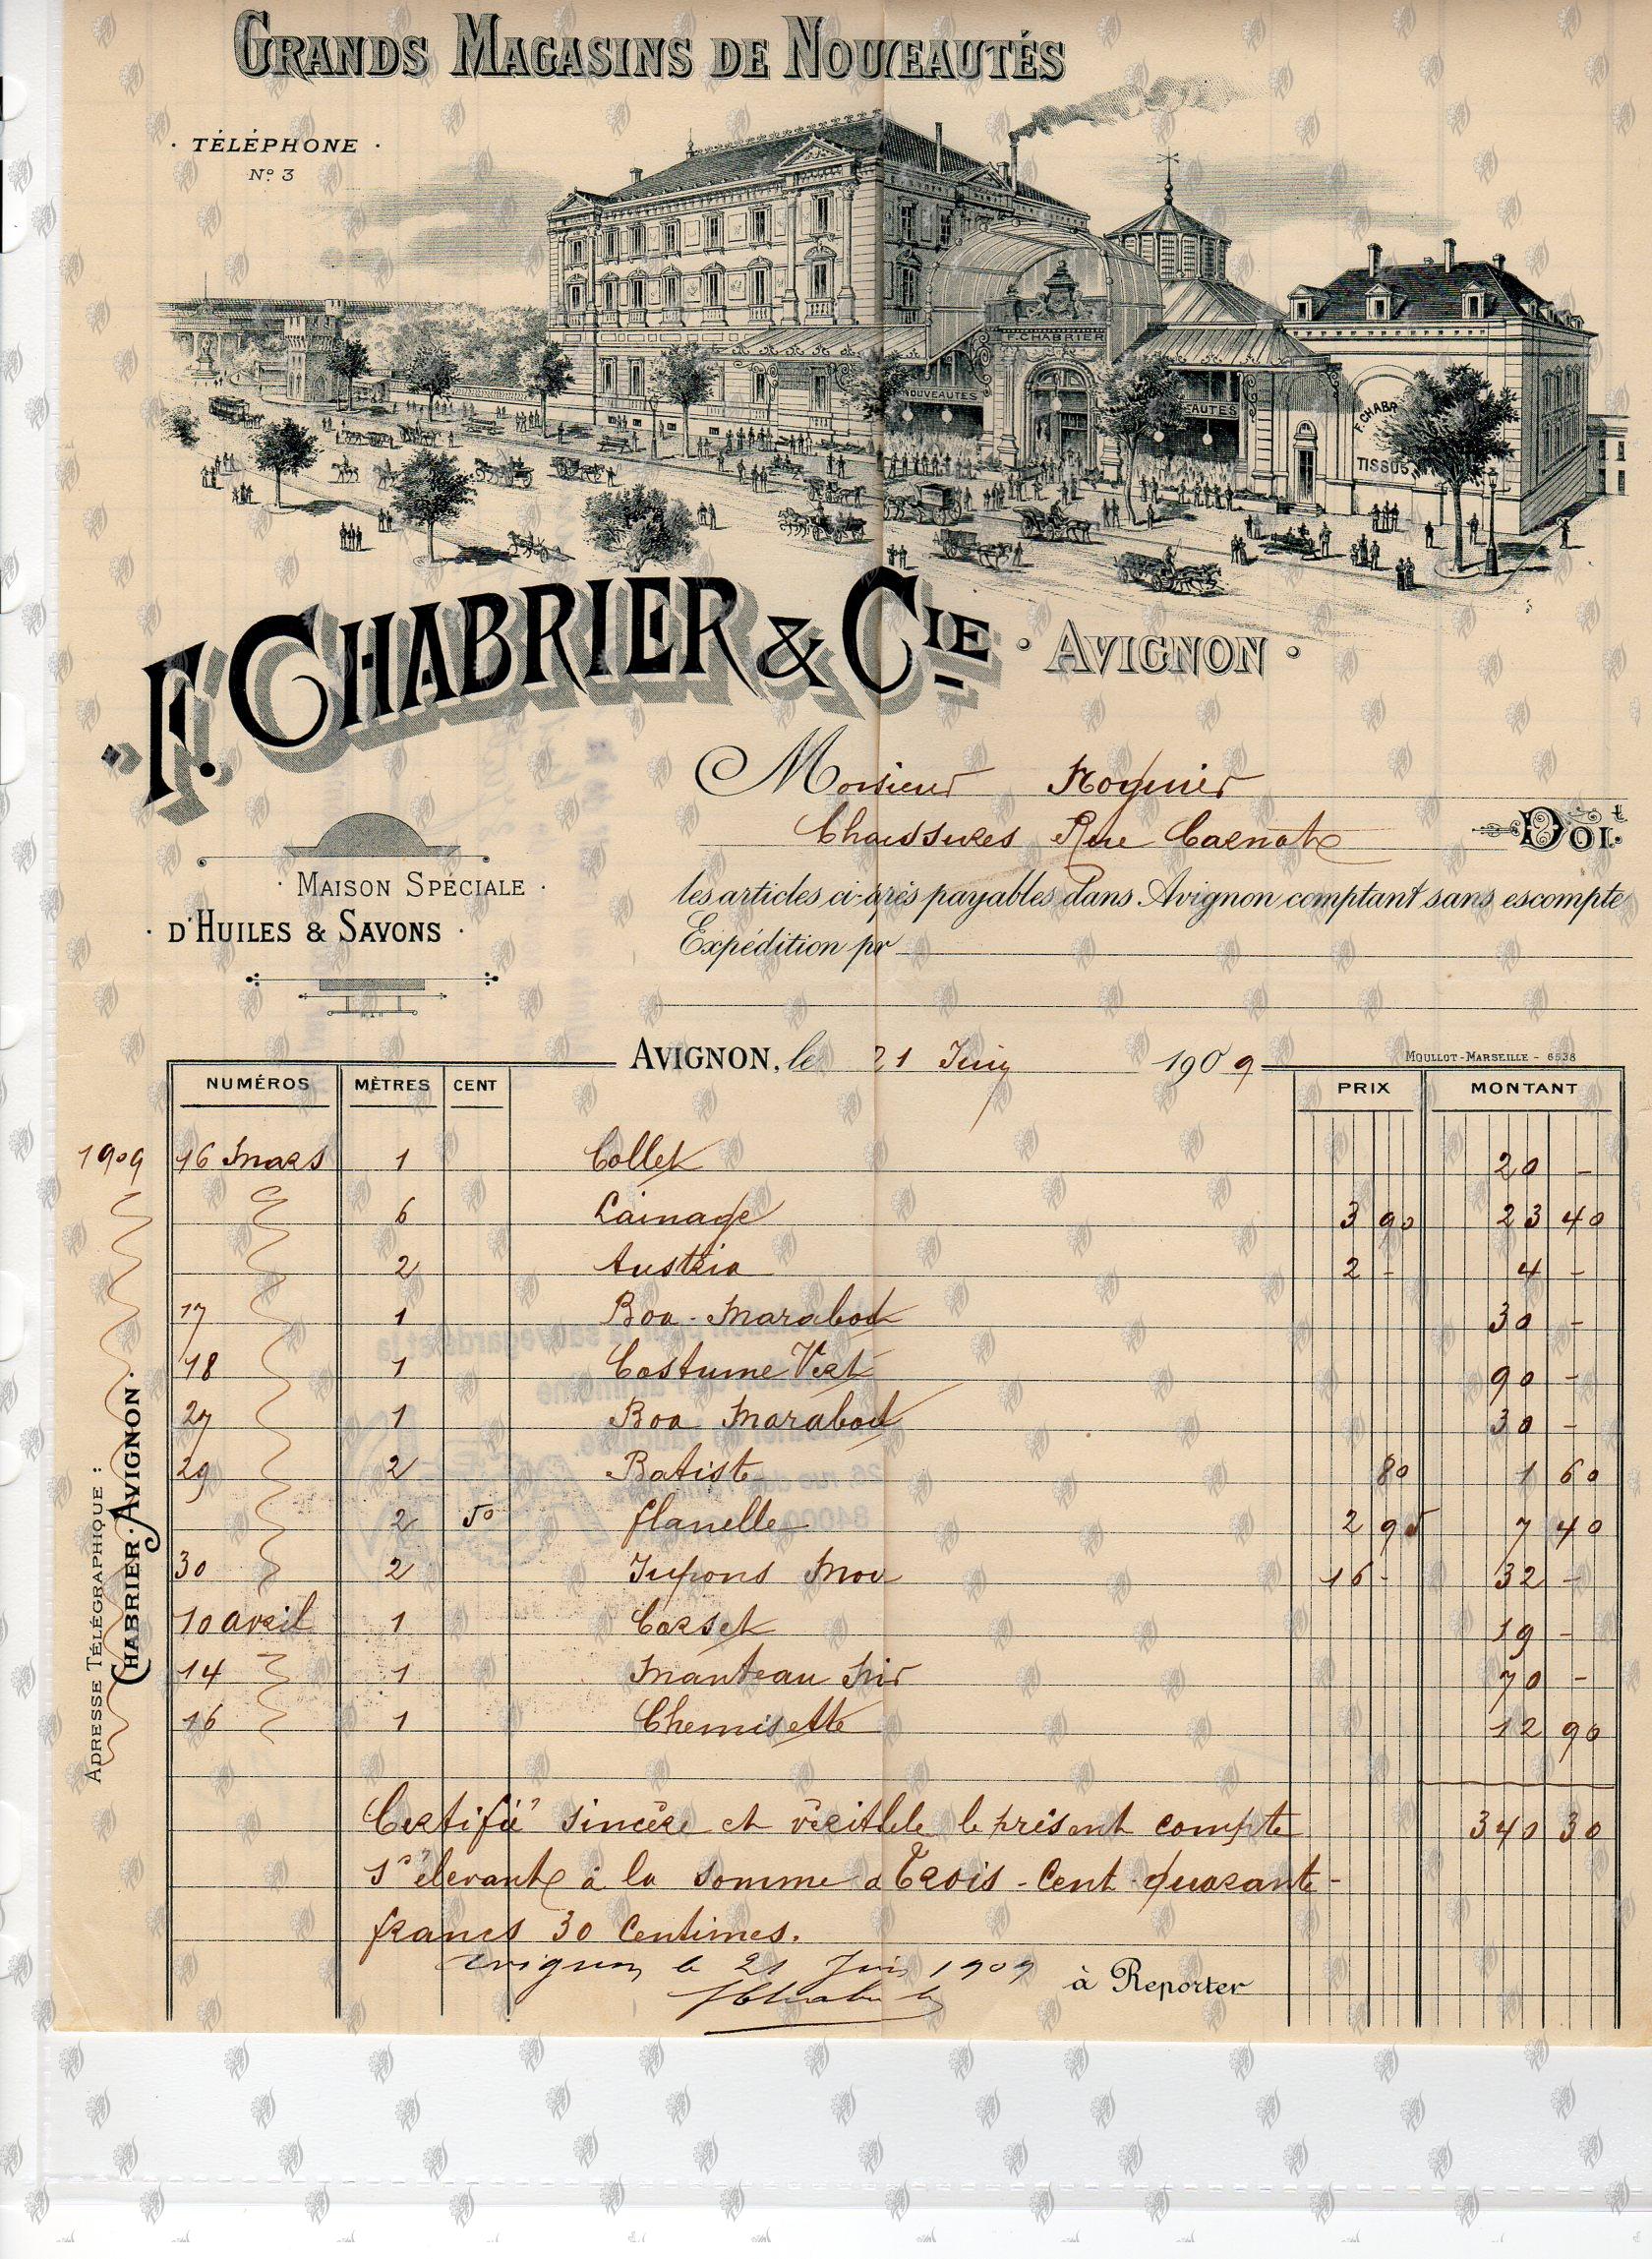 GRANDS MAGASINS DE NOUVEAUTÉS
· TÉLÉPHONE ·
Nº 3
F. CHABRIER
NOUVEAUTES
EAUTES
F. CHABR
TISSUS
F. CHABRIER & CIE · AVIGNON ·
Monsieur
Chaussures Rue Carnot
DOIT.
· MAISON SPÉCIALE ·
· D'HUILES & SAVONS ·
les articles ci-après payables dans Avignon comptant sans escompte
Expédition pr
AVIGNON, le 21 Juin 1909
MOULLOT-MARSEILLE - 6538
NUMÉROS MÈTRES CENT PRIX MONTANT
1909 16 Mars 1 Collet 20 -
6 Lainage 3 90 23 40
2 Austria 2 - 4 -
17 1 Boa - Marabout 30 -
18 1 Costume Vert 90 -
27 1 Boa Marabout 30 -
29 2 Batiste 80 1 60
2 50 flanelle 2 95 7 40
30 2 Jupons 16 - 32 -
10 avril 1 Corset 19 -
14 1 Manteau 70 -
16 1 Chemisette 12 90
Certifié sincère et véritable le présent compte 340 30
s'élevant à la somme d Trois - Cent quarante -
francs 30 Centimes.
Avignon le 21 Juin 1909
à Reporter
ADRESSE TÉLÉGRAPHIQUE :
CHABRIER · AVIGNON ·